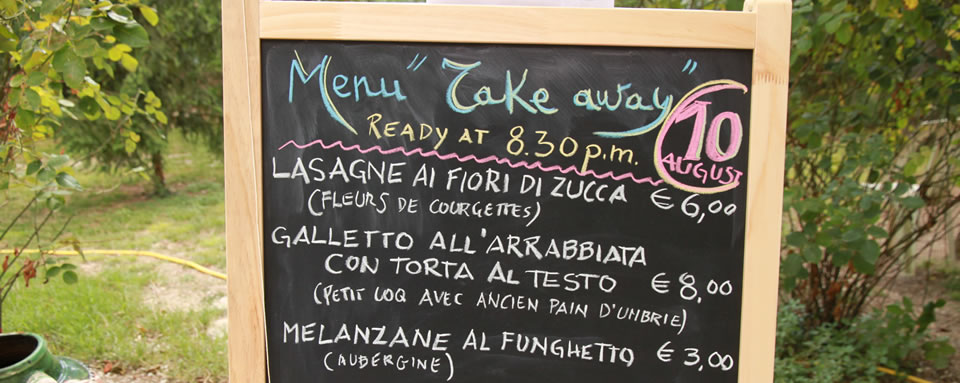 Menu "Take away"
READY AT 8.30 p.m.
10
AUGUST
LASAGNE AI FIORI DI ZUCCA € 6,00
(FLEURS DE COURGETTES)
GALLETTO ALL'ARRABBIATA
CON TORTA AL TESTO € 8,00
(PETIT COQ AVEC ANCIEN PAIN D'UMBRIE)
MELANZANE AL FUNGHETTO € 3,00
(AUBERGINE)